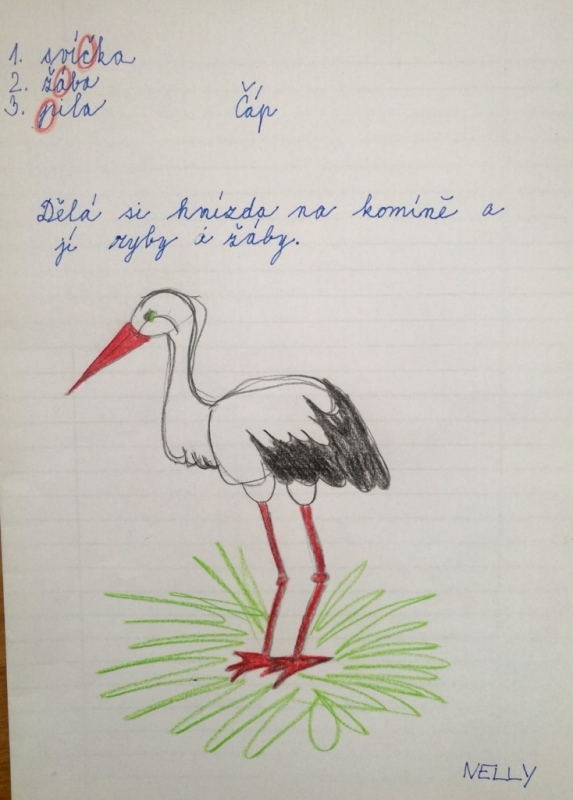 1. svíčka
2. žába
3. pila
Čáp
Dělá si hnízdo na komíně a
jí ryby a žáby.
NELLY